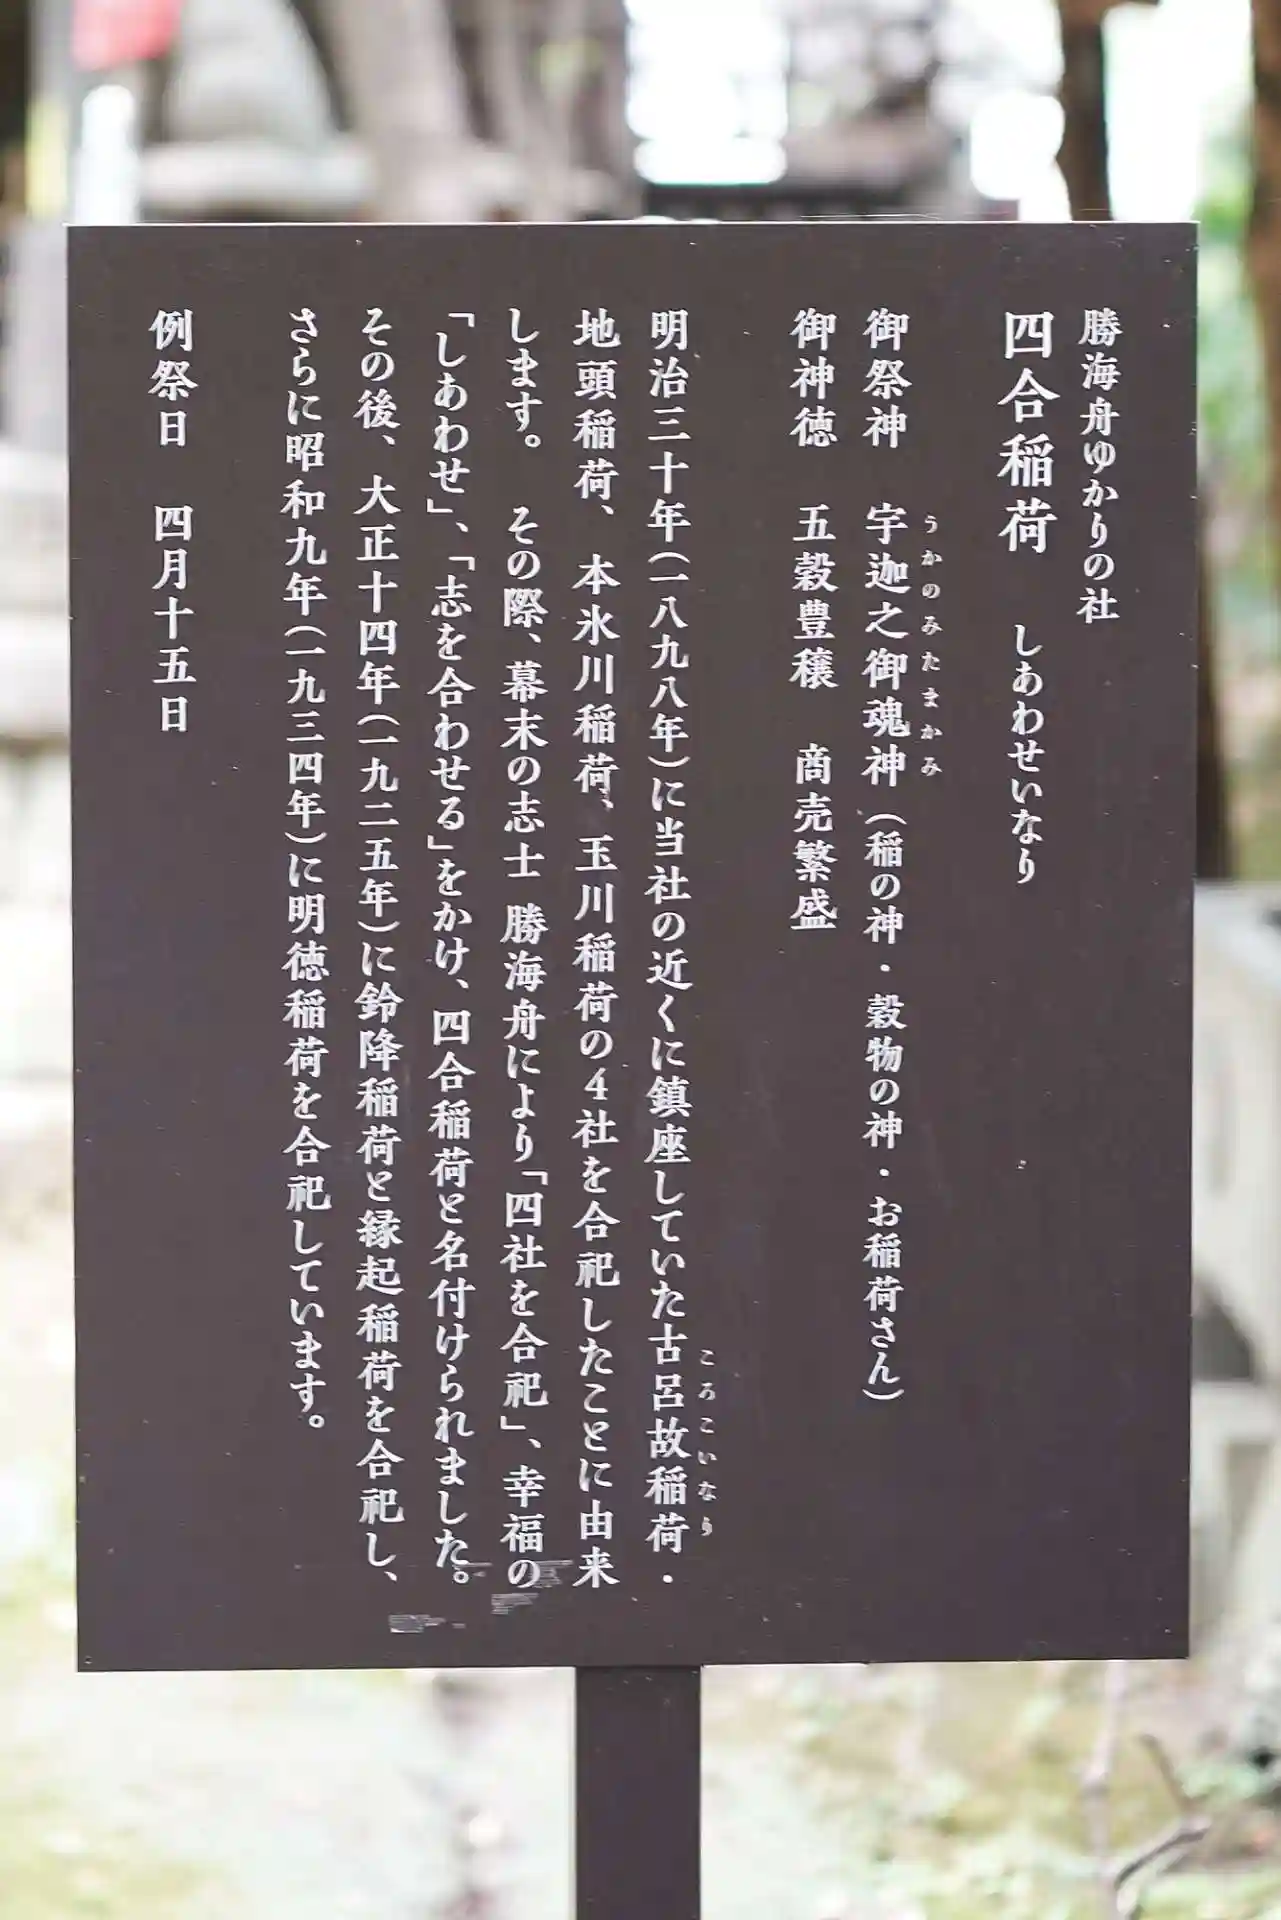 勝海舟ゆかりの社
四合稲荷　しあわせいなり
御祭神　宇迦之御魂神（稲の神・穀物の神・お稲荷さん）
うかのみたまかみ
御神徳　五穀豊穣　商売繁盛
明治三十年（一八九八年）に当社の近くに鎮座していた古呂故稲荷・
ころこいなり
地頭稲荷、本氷川稲荷、玉川稲荷の４社を合祀したことに由来
します。　その際、幕末の志士 勝海舟により「四社を合祀」、幸福の
「しあわせ」、「志を合わせる」をかけ、四合稲荷と名付けられました。
その後、大正十四年（一九二五年）に鈴降稲荷と縁起稲荷を合祀し、
さらに昭和九年（一九三四年）に明徳稲荷を合祀しています。
例祭日　四月十五日